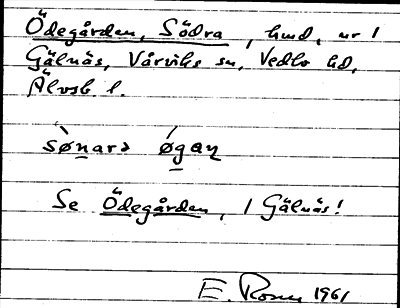 Ödegården, Södra, hmd, nr 1
Gälnäs, Vårviks sn, Vedbo hd,
Älvsb. l.
sø̀narə ǿgaɳ
Se Ödegården, 1 Gälnäs!
E. 1961